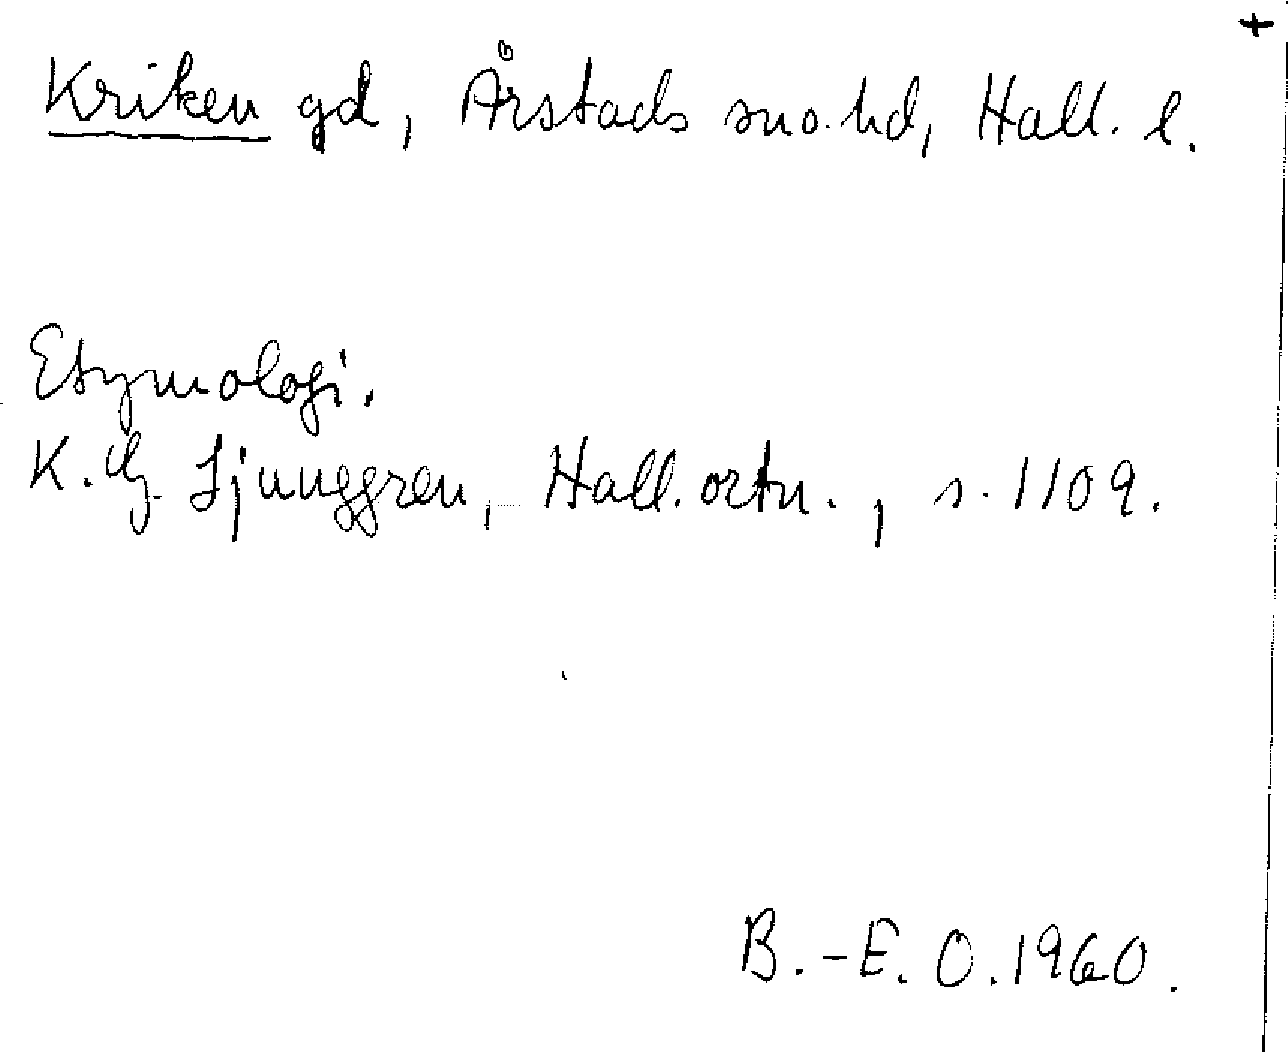 +
Kriken gd, Årstads sn o. hd, Hall. l.
Etymologi.
K. G. Ljunggren, Hall. ortn., s. 1109.
B.-E. O. 1960.